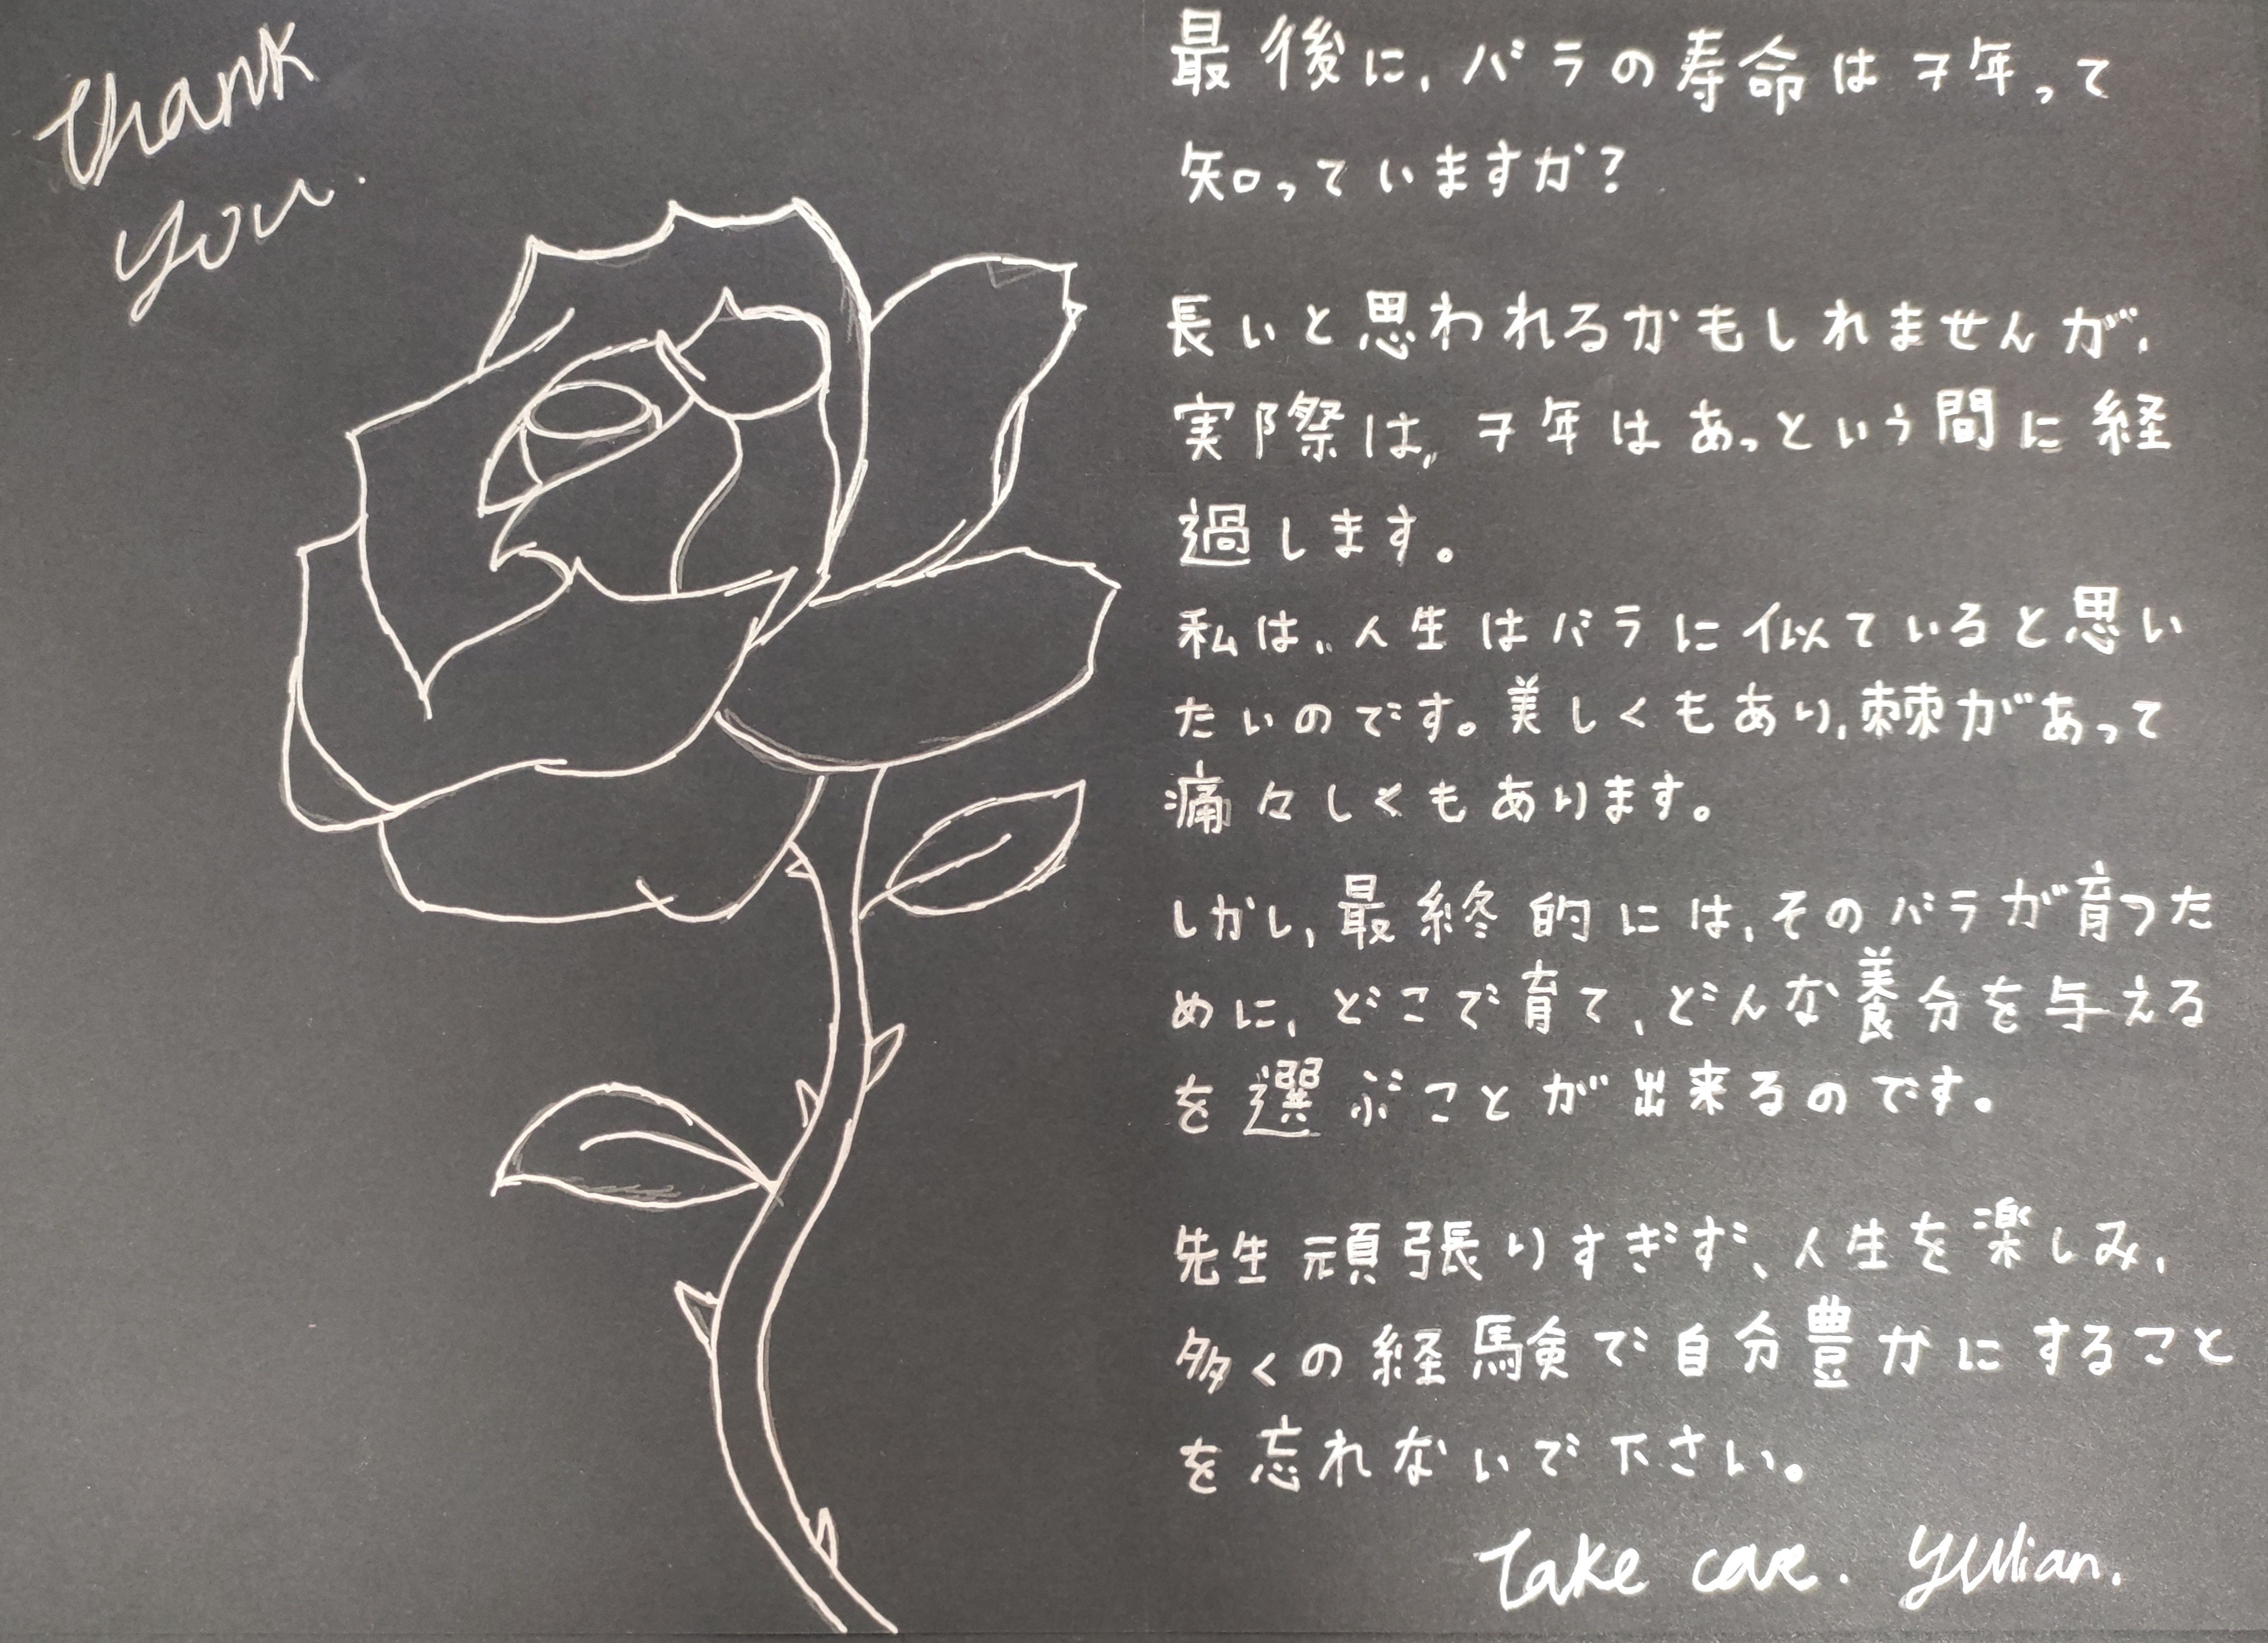 thank
you.
最後に,バラの寿命は7年って
知っていますか?
長いと思われるかもしれませんが,
実際は,7年はあっという間に経
過します。
私は,人生はバラに似ていると思い
たいのです。美しくもあり,棘があって
痛々しくもあります。
しかし,最終的には,そのバラが育つた
めに,どこで育て,どんな養分を与える
を選ぶことが出来るのです。
先生頑張りすぎず、人生を楽しみ,
多くの経験で自分豊かにすること
を忘れないで下さい。
take care. Yulian.